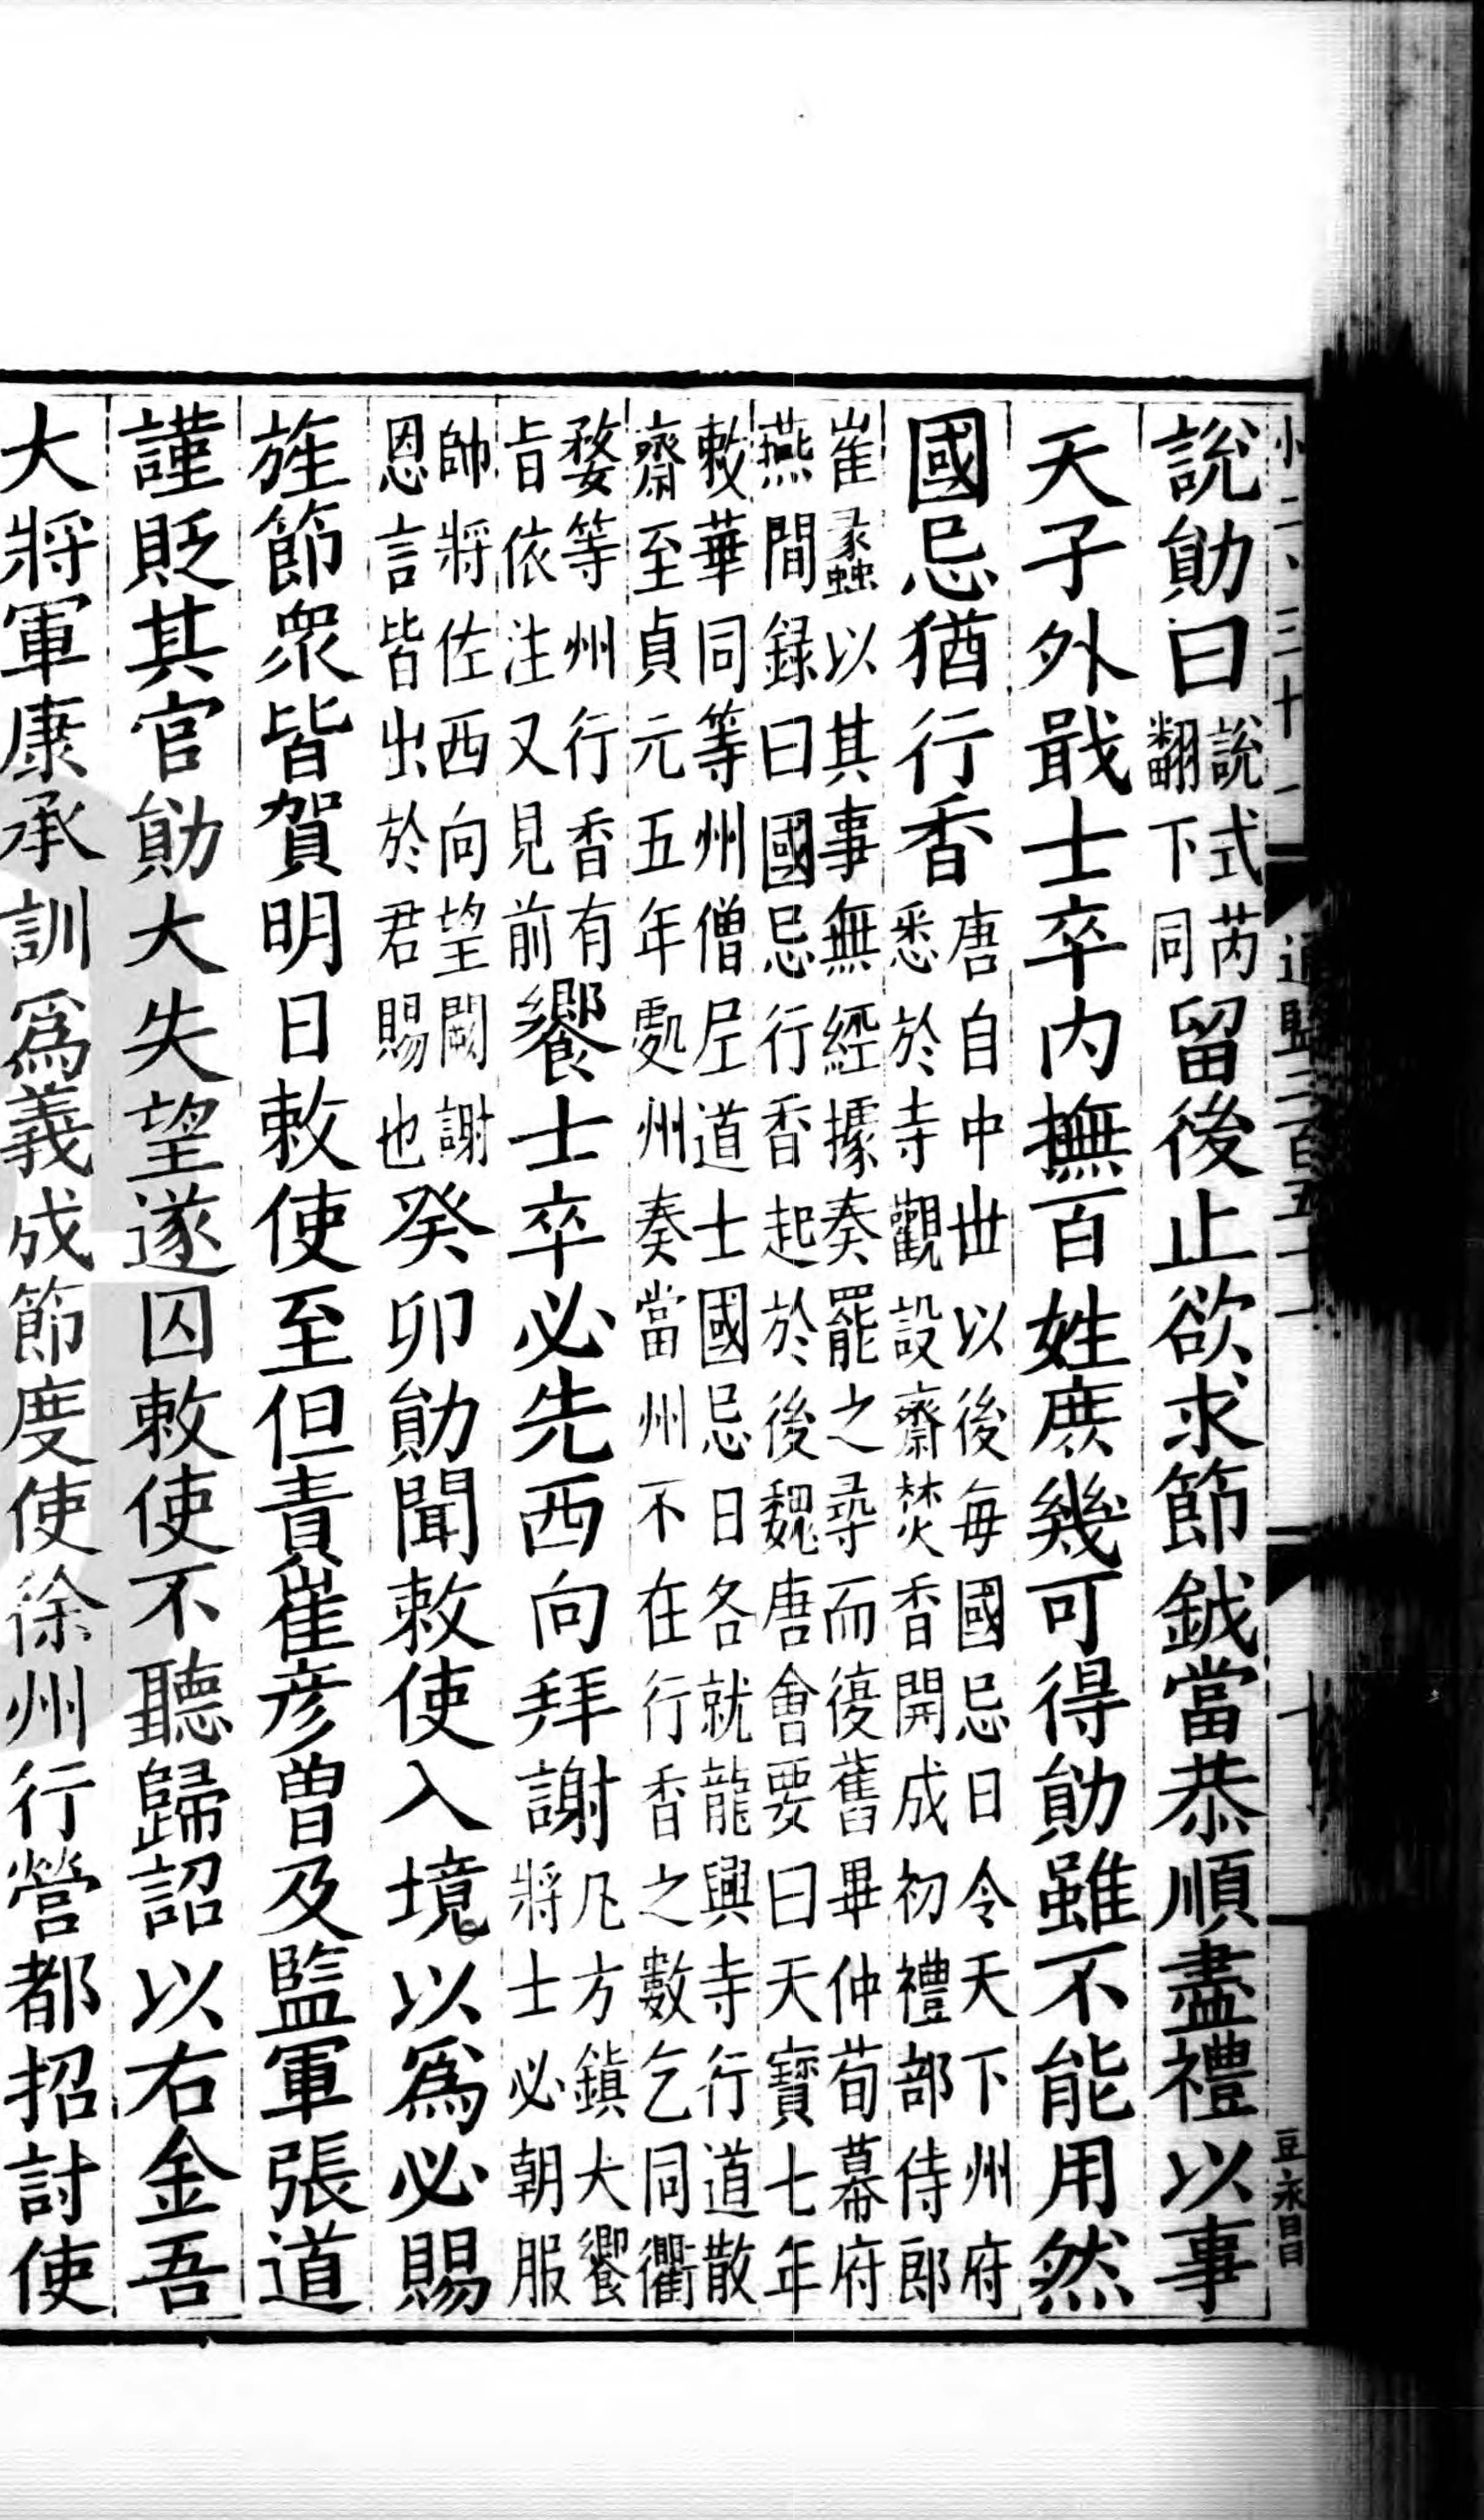 小二、三十一 通鑑二百五十一 十
說勛曰說式芮翻下同留後止欲求節鉞當恭順盡禮以事
天子外戢士卒内撫百姓庶幾可得勛雖不能用然
國忌猶行香唐自中世以後每國忌日令天下州府
悉於寺觀設齋焚香開成初禮部侍郎
崔蠡以其事無經據奏罷之尋而復舊畢仲荀幕府
燕間録曰國忌行香起於後魏唐會要曰天寶七年
敕華同等州僧尼道士國忌日各就龍興寺行道散
齋至貞元五年處州奏當州不在行香之數乞同衢
婺等州行香有旨依注又見前饗士卒必先西向拜謝凡方鎮大饗將士必朝服
帥將佐西向望闕謝恩言皆出於君賜也癸卯勛聞敕使入境以爲必賜
旌節衆皆賀明日敕使至但責崔彦曾及監軍張道
謹貶其官勛大失望遂囚敕使不聽歸詔以右金吾
大將軍康承訓爲義成節度使徐州行營都招討使